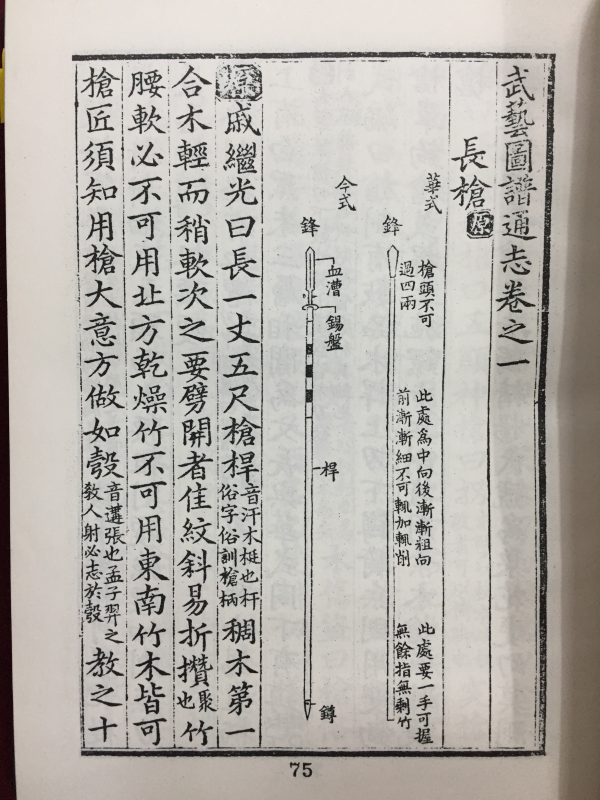 武藝圖譜通志卷之一
長槍 原
華式
鋒
槍頭不可
過四兩
此處爲中向後漸漸粗向
前漸漸細不可輒加輒削
此處要一手可握
無餘指無剩竹
今式
鋒
血漕
錫盤
桿
鐏
戚繼光曰長一丈五尺槍桿音汗木梃也杆俗字俗訓槍柄稠木第一
合木輕而稍軟次之要劈開者佳紋斜易折攢聚也竹
腰軟必不可用北方乾燥竹不可用東南竹木皆可
槍匠須知用槍大意方做如彀音遘張也孟子羿之敎人射必志於彀教之十
75